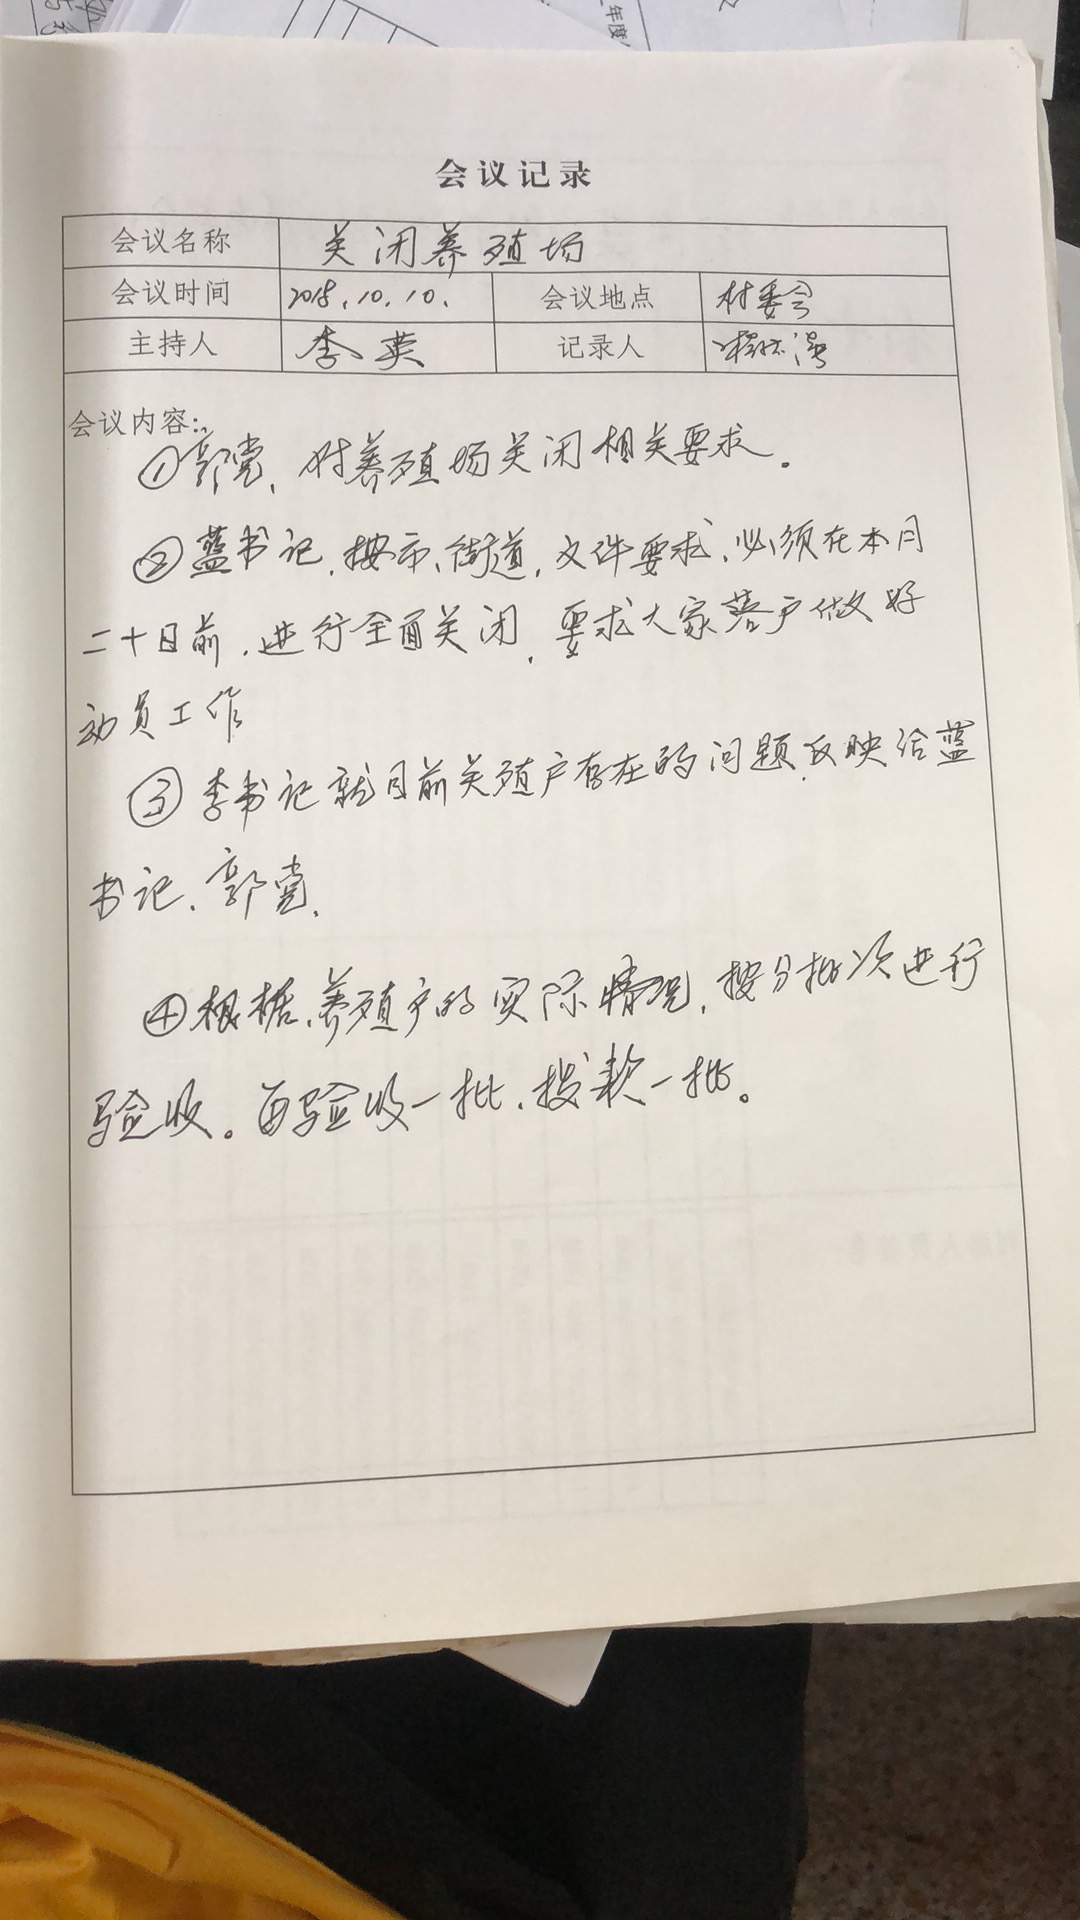 年度
会议记录
会议名称 关闭养殖场
会议时间 2018.10.10. 会议地点 村委会
主持人 李英 记录人
会议内容:
①郭党、对养殖场关闭相关要求。
②蓝书记、按市、街道、文件要求、必须在本月
二十日前、进行全面关闭、要求大家落户做好
动员工作
③李书记就目前关殖户存在的问题、反映给蓝
书记、郭党、
④根据、养殖户的实际情况、按分批次进行
验收。每验收一批、拨款一批。